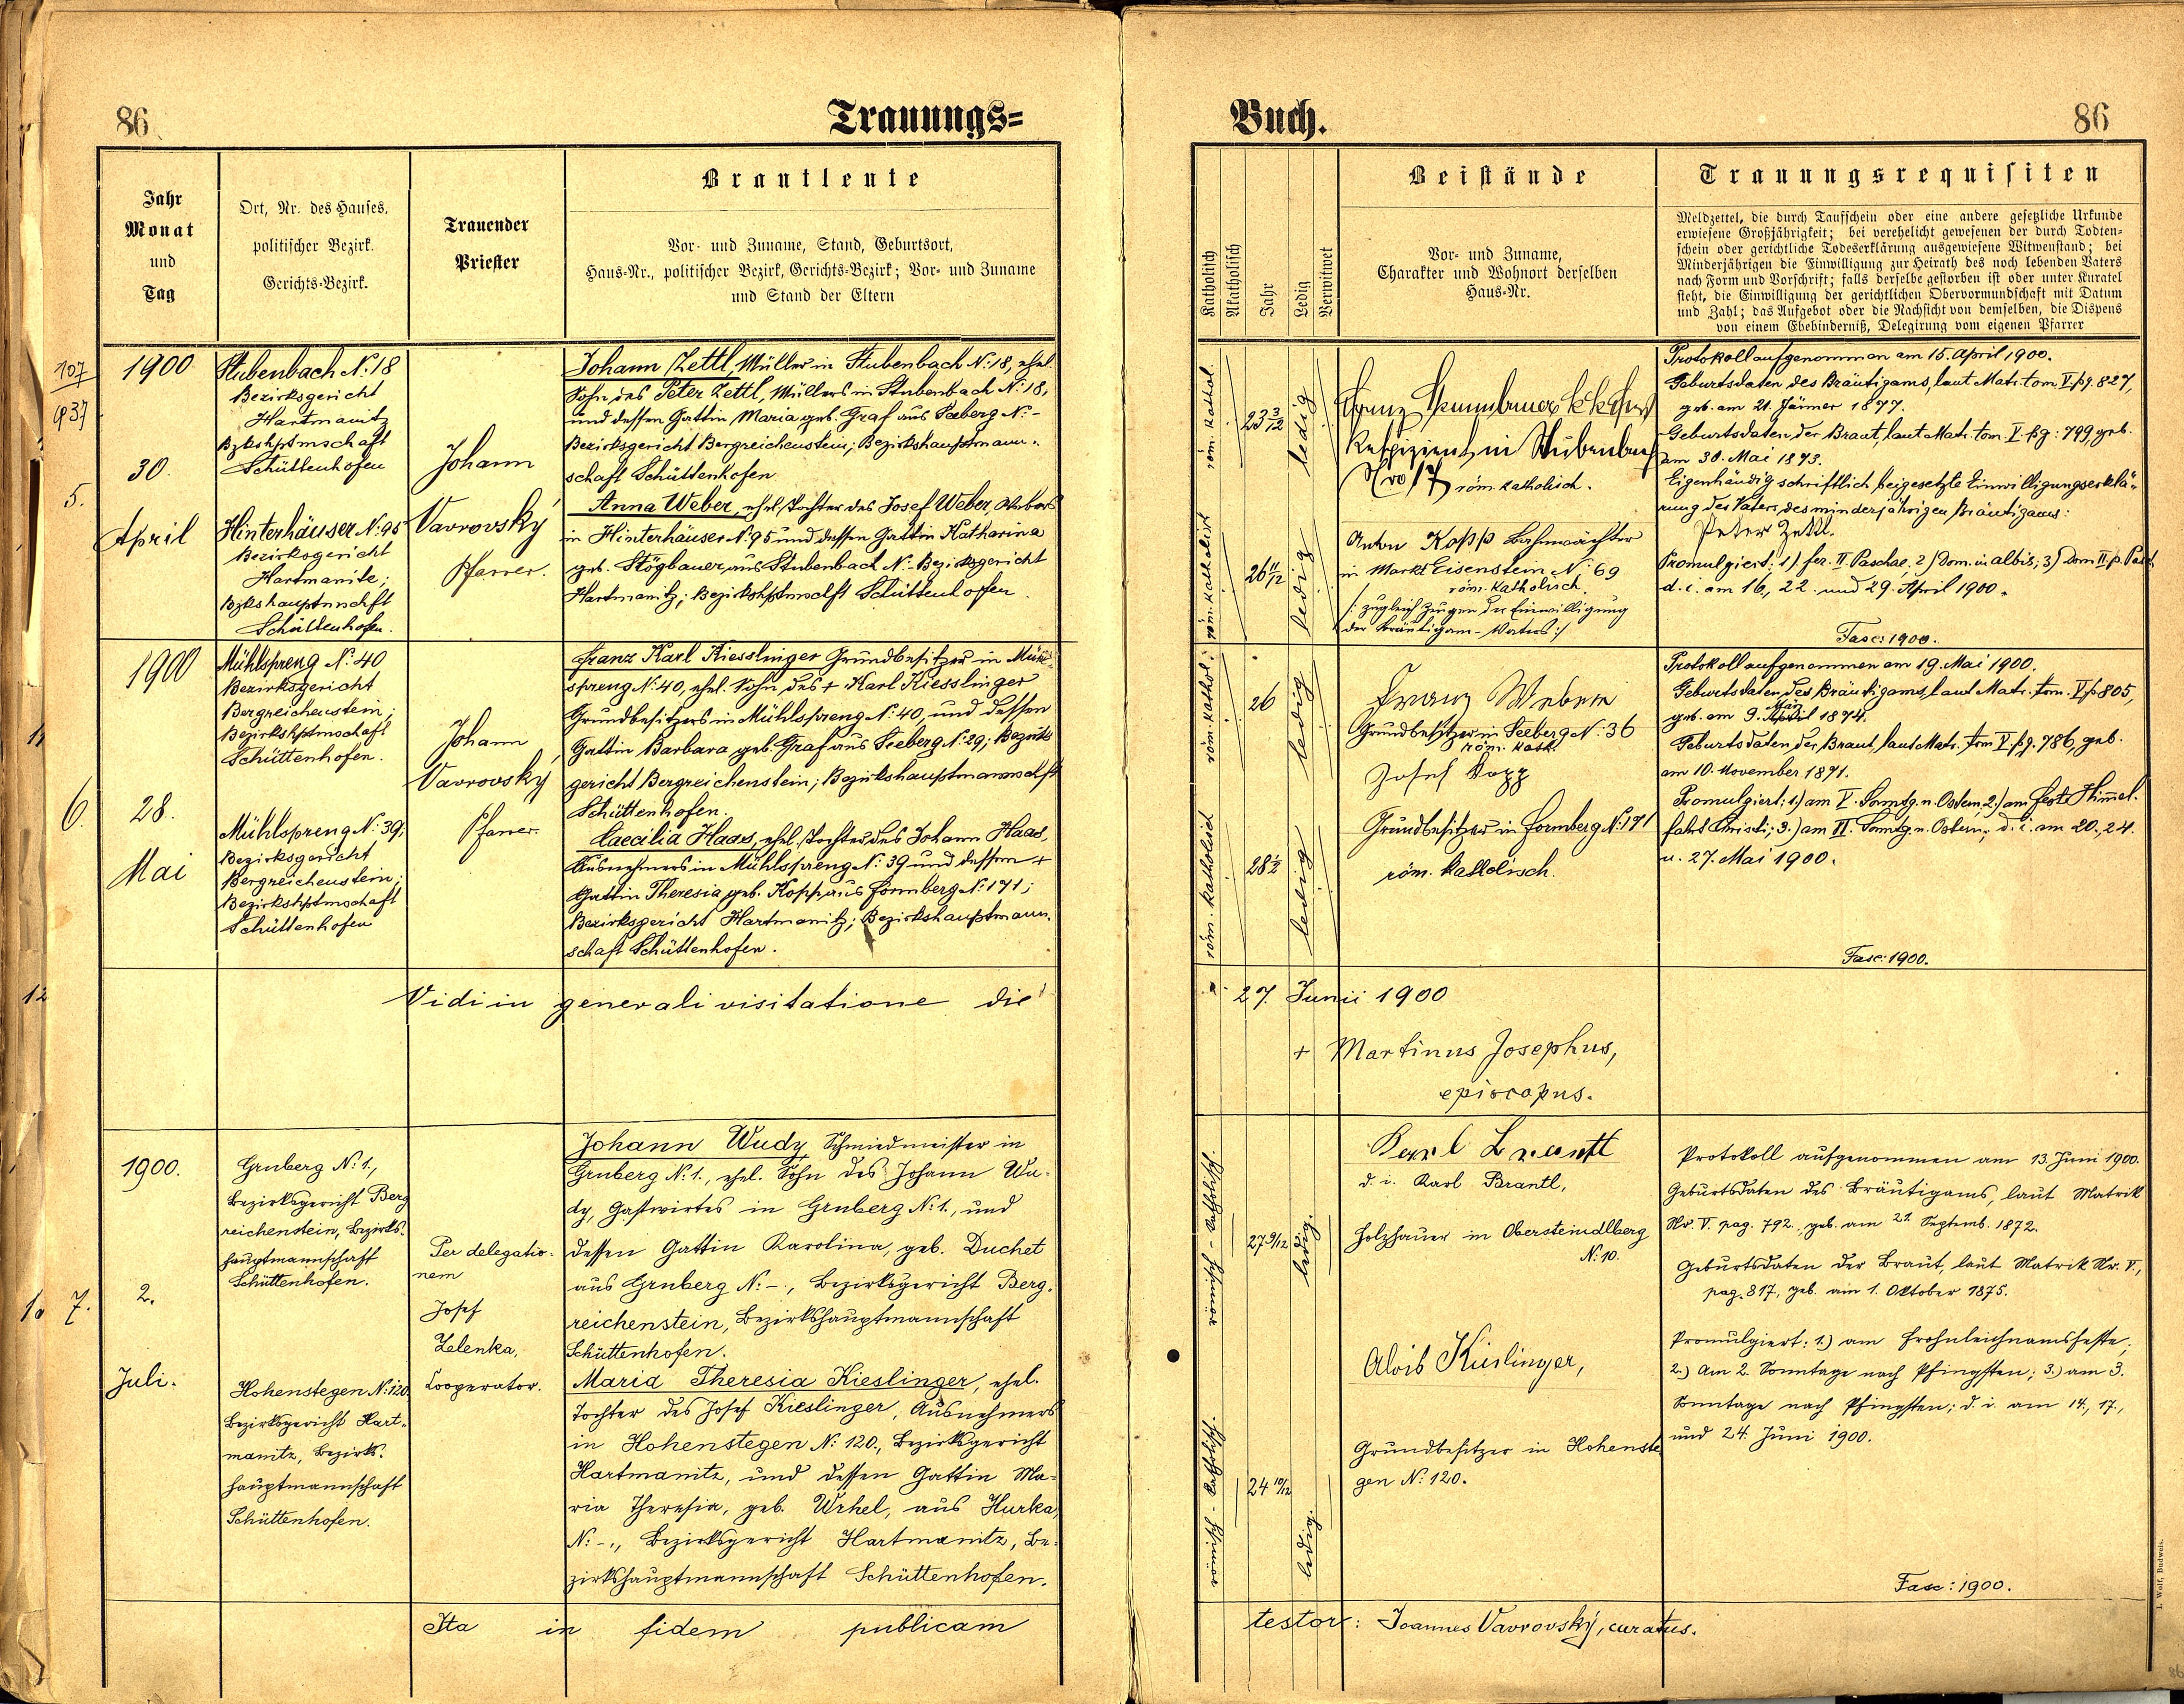 86
Trauungs=
Jahr
Monat
und
Tag
Ort, Nr. des Hauses,
politischer Bezirk.
Gerichts-Bezirk.
Trauender
Priester
Brautleute
Vor- und Zuname, Stand, Geburtsort,
Haus-Nr., politischer Bezirk, Gerichts-Bezirk; Vor- und Zuname
und Stand der Eltern
107
937
5.
1900
30.
April
Stubenbach N: 18
Bezirksgericht
Hartmanitz
Bzkshptmschaft
Schüttenhofen
Hinterhäuser N: 95
Bezirksgericht
Hartmanitz;
Bzkshauptmschft
Schüttenhofen.
Johann
Vavrovský
Pfarrer.
Johann Zettl, Müller in Stubenbach N: 18, ehel.
Sohn des Peter Zettl, Müllers in Stubenbach N: 18,
und dessen Gattin Maria geb. Graf aus Seeberg N: -
Bezirksgericht Bergreichenstein; Bezirkshauptmann-
schaft Schüttenhofen
Anna Weber, ehel. Tochter des Josef Weber, Webers
in Hinterhäuser N: 95 und dessen Gattin Katharina
geb. Stögbauer, aus Stubenbach N: - Bezirksgericht
Hartmanitz; Bezirkshptmschft Schüttenhofen.
6.
1900
28.
Mai
Mühlspreng N: 40
Bezirksgericht
Bergreichenstein;
Bezirkshptmschaft
Schüttenhofen.
Mühlspreng N: 39;
Bezirksgericht
Bergreichenstein;
Bezirkshptmschaft
Schüttenhofen
Johann
Vavrovský
Pfarrer.
Franz Karl Kiesslinger Grundbesitzer in Mühl-
spreng N: 40, ehel. Sohn des + Karl Kiesslinger
Grundbesitzers in Mühlspreng N: 40, und dessen
Gattin Barbara geb. Graf aus Seeberg N: 29; Bezirks
gericht Bergreichenstein; Bezirkshauptmannschft
Schüttenhofen.
Caecilia Haas, ehel. Tochter des Johann Haas,
Ausnehmers in Mühlspreng N: 39 und dessen +
Gattin Theresia geb. Kopp, aus Formberg N: 171;
Bezirksgericht Hartmanitz; Bezirkshauptmann-
schaft Schüttenhofen.
12
Vidi in generali visitatione die
7.
1900.
2.
Juli.
Gruberg N: 1.,
Bezirksgericht Berg
reichenstein, Bezirks-
hauptmannschaft
Schüttenhofen.
Hohenstegen N: 120,
Bezirksgericht Hart-
manitz, Bezirks-
hauptmannschaft
Schüttenhofen.
Per delegatio-
nem
Josef
Zelenka,
Cooperator.
Johann Wudy, Schmiedmeister in
Gruberg N: 1., ehel. Sohn des Johann Wu-
dy, Gastwirtes in Gruberg N: 1., und
dessen Gattin Karolina, geb. Duchet
aus Gruberg N: -, Bezirksgericht Berg-
reichenstein, Bezirkshauptmannschaft
Schüttenhofen.
Maria Theresia Kieslinger, ehel.
Tochter des Josef Kieslinger, Ausnehmers
in Hohenstegen N: 120., Bezirksgericht
Hartmanitz, und dessen Gattin Ma-
ria Theresia, geb. Wrhel, aus Hurka,
N: -., Bezirksgericht Hartmanitz, Be-
zirkshauptmannschaft Schüttenhofen.
Ita in fidem publicam
Buch.
86
Katholisch
Akatholisch
Jahr
Ledig
Verwitwet
Beistände
Vor- und Zuname,
Charakter und Wohnort derselben
Haus-Nr.
Trauungsrequisiten
Meldzettel, die durch Taufschein oder eine andere gesetzliche Urkunde
erwiesene Großjährigkeit; bei verehelicht gewesenen der durch Todten-
schein oder gerichtliche Todeserklärung ausgewiesene Witwenstand; bei
Minderjährigen die Einwilligung zur Heirath des noch lebenden Vaters
nach Form und Vorschrift; falls derselbe gestorben ist oder unter Kuratel
steht, die Einwilligung der gerichtlichen Obervormundschaft mit Datum
und Zahl; das Aufgebot oder die Nachsicht von demselben, die Dispens
von einem Ehebinderniß, Delegirung vom eigenen Pfarrer
röm. kathol.
23 3/12
ledig
röm. katholisch
26 11/12
ledig
Franz
Respizient in Stubenbach
Nro 17 röm. katholisch.
Anton Kopp Bahnwächter
in Markt Eisenstein N: 69
röm. katholisch.
/: zugleich Zeugen der Einwilligung
des Bräutigam-Vaters :/
Protokoll aufgenommen am 15. April 1900.
Geburtsdaten des Bräutigams, laut Matr. tom. V. pg. 827,
geb. am 21. Jänner 1877.
Geburtsdaten der Braut, laut Matr. tom. V. pg: 799, geb.
am 30. Mai 1873.
Eigenhändig schriftlich beigesetzte Einwilligungserklä-
rung des Vaters des minderjährigen Bräutigams:
Peter Zettl.
Promulgiert: 1) fer. II. Paschae, 2) Dom. in albis; 3) Dom II. p. Pasch
d. i. am 16., 22. und 29. April 1900.
Fasc: 1900.
röm. kathol.
26
ledig
röm. katholisch
28 1/2
ledig
Franz Weber
Grundbesitzer in Seeberg N: 36
röm. kath.
Josef Kopp
Grundbesitzer in Formberg N: 171
röm. katholisch.
Protokoll aufgenommen am 19. Mai 1900.
Geburtsdaten des Bräutigams, laut Matr. tom. V. p 805,
geb. am 9. April 1874.
Geburtsdaten der Braut, laut Matr. tom V. pg. 786, geb.
am 10. November 1871.
Promulgiert: 1.) am V. Sonntg. n. Ostern, 2.) am Feste Himmel-
fahrt Christi; 3.) am VI. Sonntg. n. Ostern; d. i. am 20., 24.
u. 27. Mai 1900.
Fasc: 1900.
27. Junii 1900
+ Martinus Josephus,
episcopus.
römisch-katholisch.
27 9/12
ledig.
römisch-katholisch.
24 10/12
ledig.
Karl Brantl
d. i. Karl Brantl,
Holzhauer in Obersteindlberg
N: 10.
Alois Kieslinger,
Grundbesitzer in Hohenste
gen N: 120.
Protokoll aufgenommen am 13. Juni 1900.
Geburtsdaten des Bräutigams, laut Matrik
Nr. V. pag. 792., geb. am 21. Septemb. 1872.
Geburtsdaten der Braut, laut Matrik Nr. V.,
pag. 817, geb. am 1. Oktober 1875.
Promulgiert: 1.) am Frohnleichnamsfeste;
2.) Am 2. Sonntage nach Pfingsten; 3.) am 3.
Sonntage nach Pfingsten; d. i. am 14., 17.,
und 24. Juni 1900.
Fasc: 1900.
testor: Joannes Vavrovský, curatus.
I. Wolf, Budweis.
86